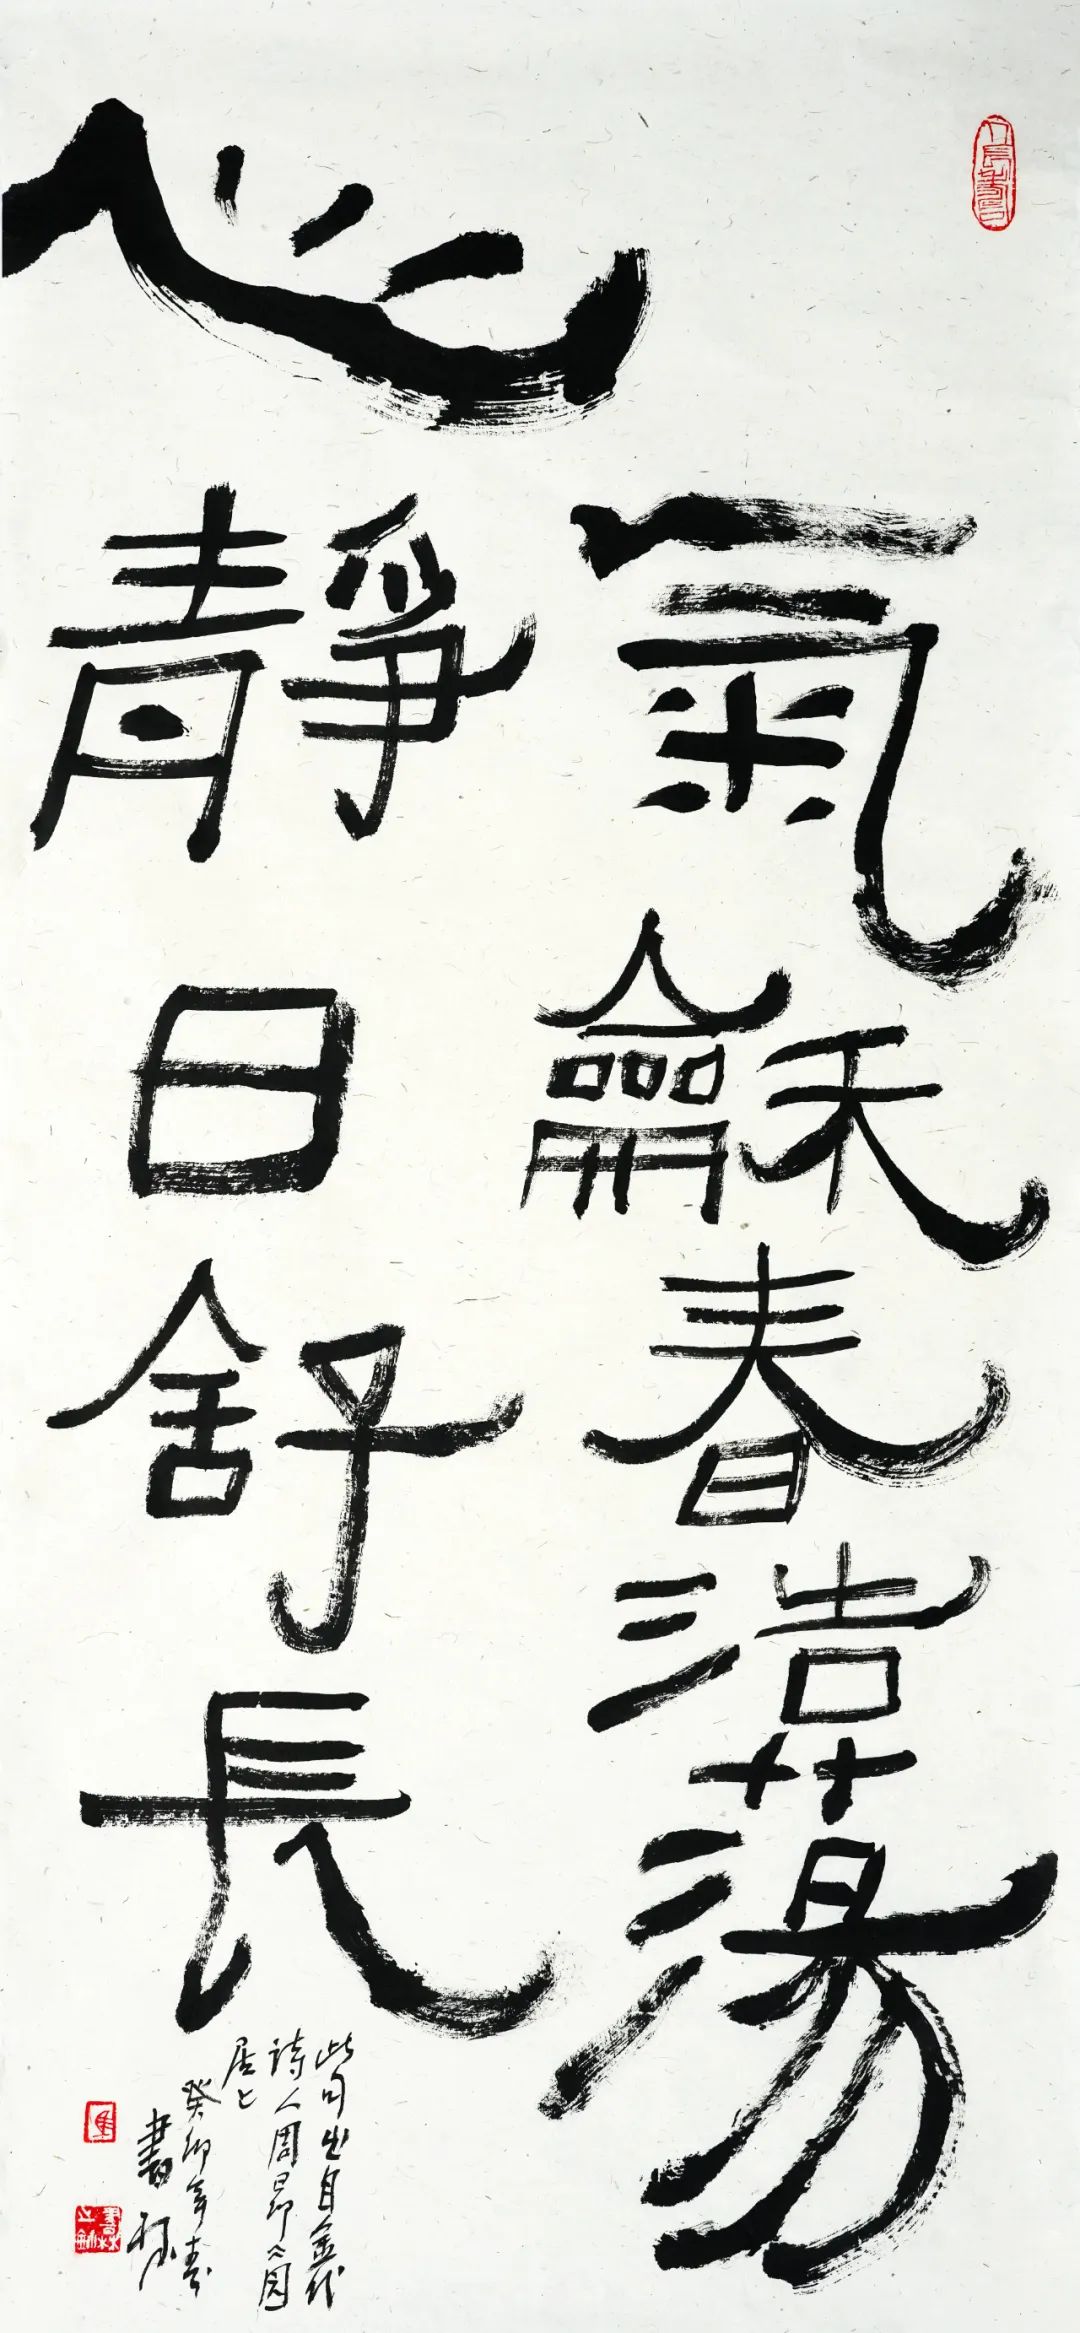 氣龢春浩蕩
心靜日舒長
此句出自金代
詩人周昂《园
居》
癸卯年春
書林